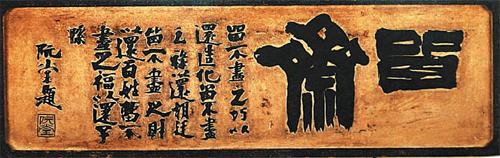 留齋
留不盡之巧以
還造化留不盡
之祿以還朝廷
留不盡之財
以還百姓留不
盡之福以還子
孫
阮堂題